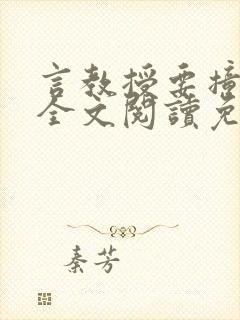 言教授要撞
全文閱讀免
秦芳